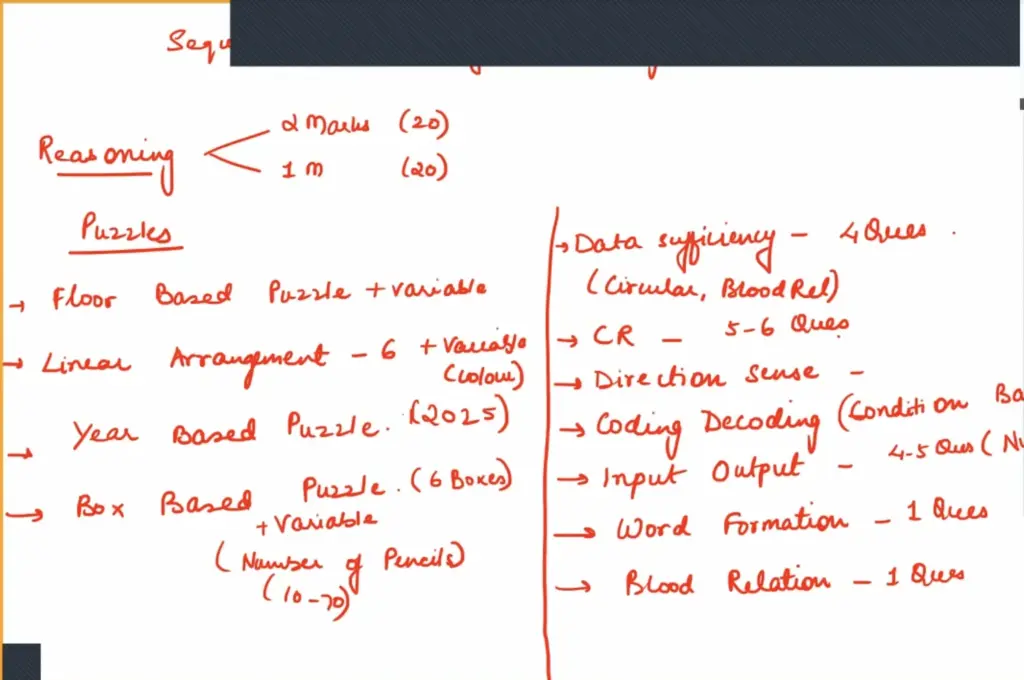 Reasoning
2 Marks (20)
1 M (20)
Puzzles
→ Floor Based Puzzle + variable
→ Linear Arrangement - 6 + Variable
(colour)
→ Year Based Puzzle. (2025)
→ Box Based Puzzle. (6 Boxes)
+ Variable
(Number of Pencils)
(10-70)
→ Data sufficiency - 4 Ques.
(Circular, Blood Rel)
→ CR - 5-6 Ques
→ Direction Sense -
→ Coding Decoding (Condition Ba
→ Input Output - 4-5 Ques (Nu
→ Word Formation - 1 Ques
→ Blood Relation - 1 Ques